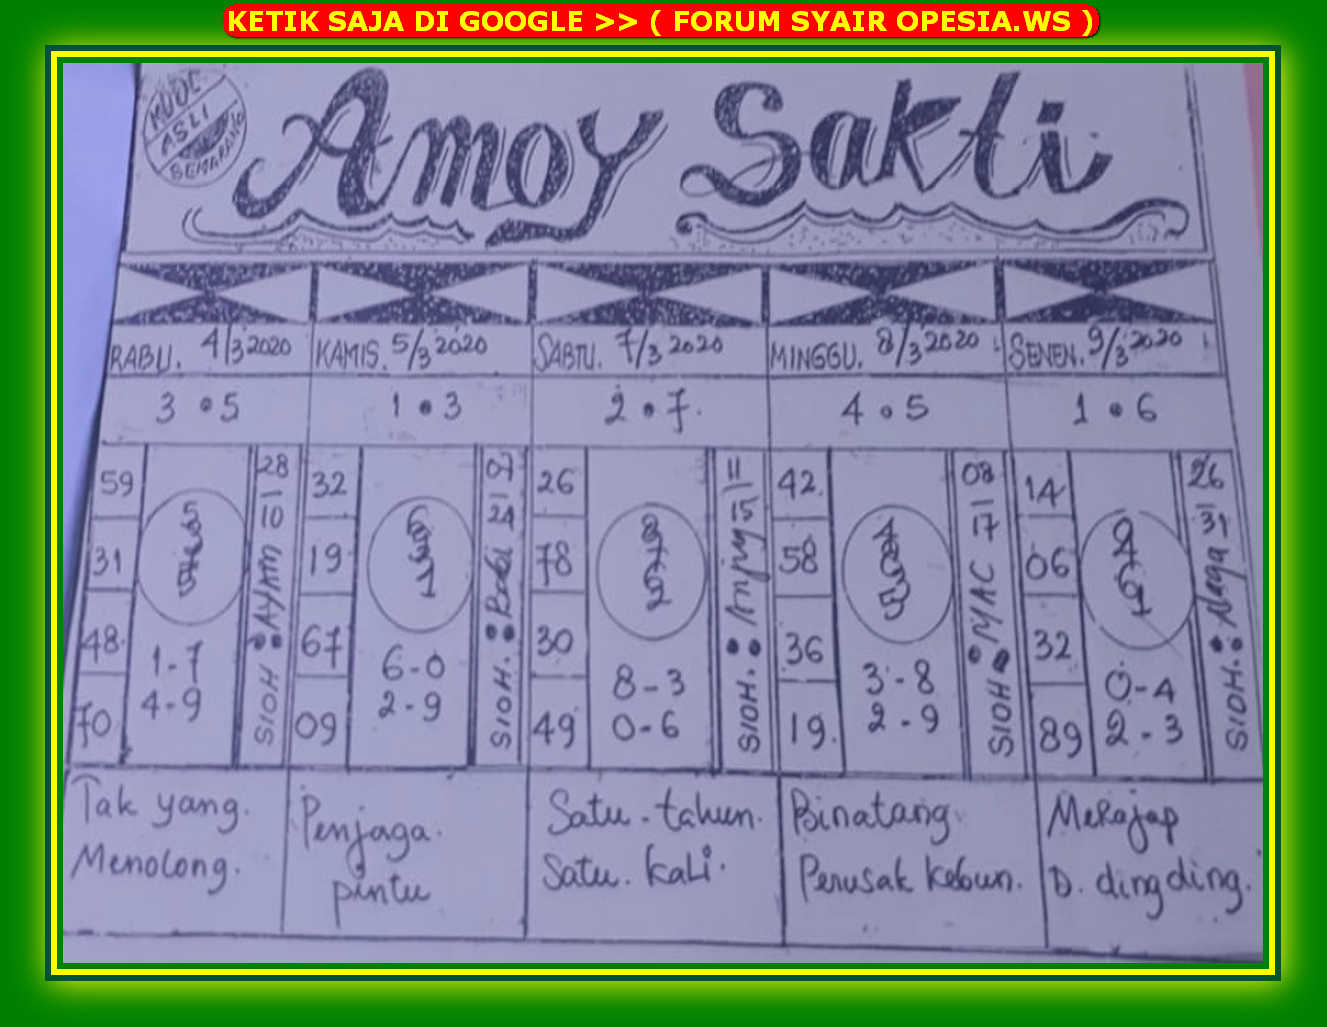 KETIK SAJA DI GOOGLE >> ( FORUM SYAIR OPESIA.WS )
ASLI
SEMARANG
Amoy Sakti
RABU. 4/3 2020
KAMIS. 5/3 2020
SABTU. 7/3 2020
MINGGU. 8/3 2020
SENEN. 9/3 2020
3 • 5
1 • 3
2 • 7.
4 • 5
1 • 6
59
31
48
70
1-7
4-9
SIOH : AYAM 10 | 28
32
19
67
09
6-0
2-9
SIOH. : Babi 21 | 07
26
78
30
49
8-3
0-6
SIOH. : Anjing 15 | 11
42
58
36
19.
3-8
2-9
SIOH : MAC 17 | 08
14
06
32
89
0-4
2-3
SIOH. : Naga 31 | 26
Tak yang.
Menolong.
Penjaga.
pintu
Satu. tahun.
Satu. kali.
Binatang
Perusak kebun.
Merajap
D. ding ding.